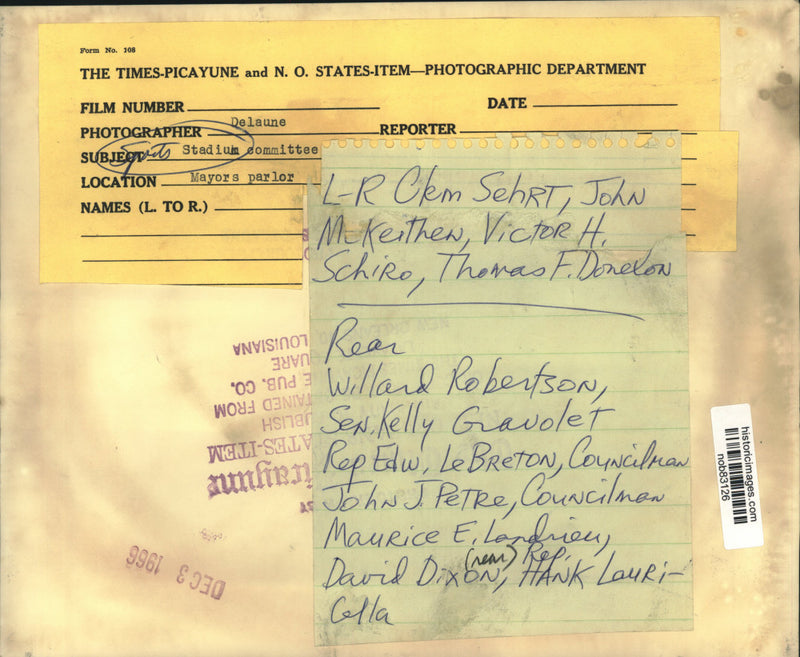 Form No. 108
THE TIMES-PICAYUNE and N. O. STATES-ITEM—PHOTOGRAPHIC DEPARTMENT
FILM NUMBER
DATE
PHOTOGRAPHER Delaune
REPORTER
SUBJECT Stadium committee
Sports
LOCATION Mayors parlor
NAMES (L. TO R.)
L-R Clem SehRT, John
McKeithen, Victor H.
Schiro, Thomas F. Donelon
Rear
Willard Robertson,
Sen. Kelly Gravolet
Rep Edw. LeBreton, Councilman
John J. Petre, Councilman
Maurice E. Landrieu,
(rear) Rep.
David Dixon, HANK Lauri-
Cella
LOUISIANA
UARE
E PUB. CO.
TAINED FROM
UBLISH
ATES-ITEM
icayune
DEC 3 1966
historicimages.com
nob83126